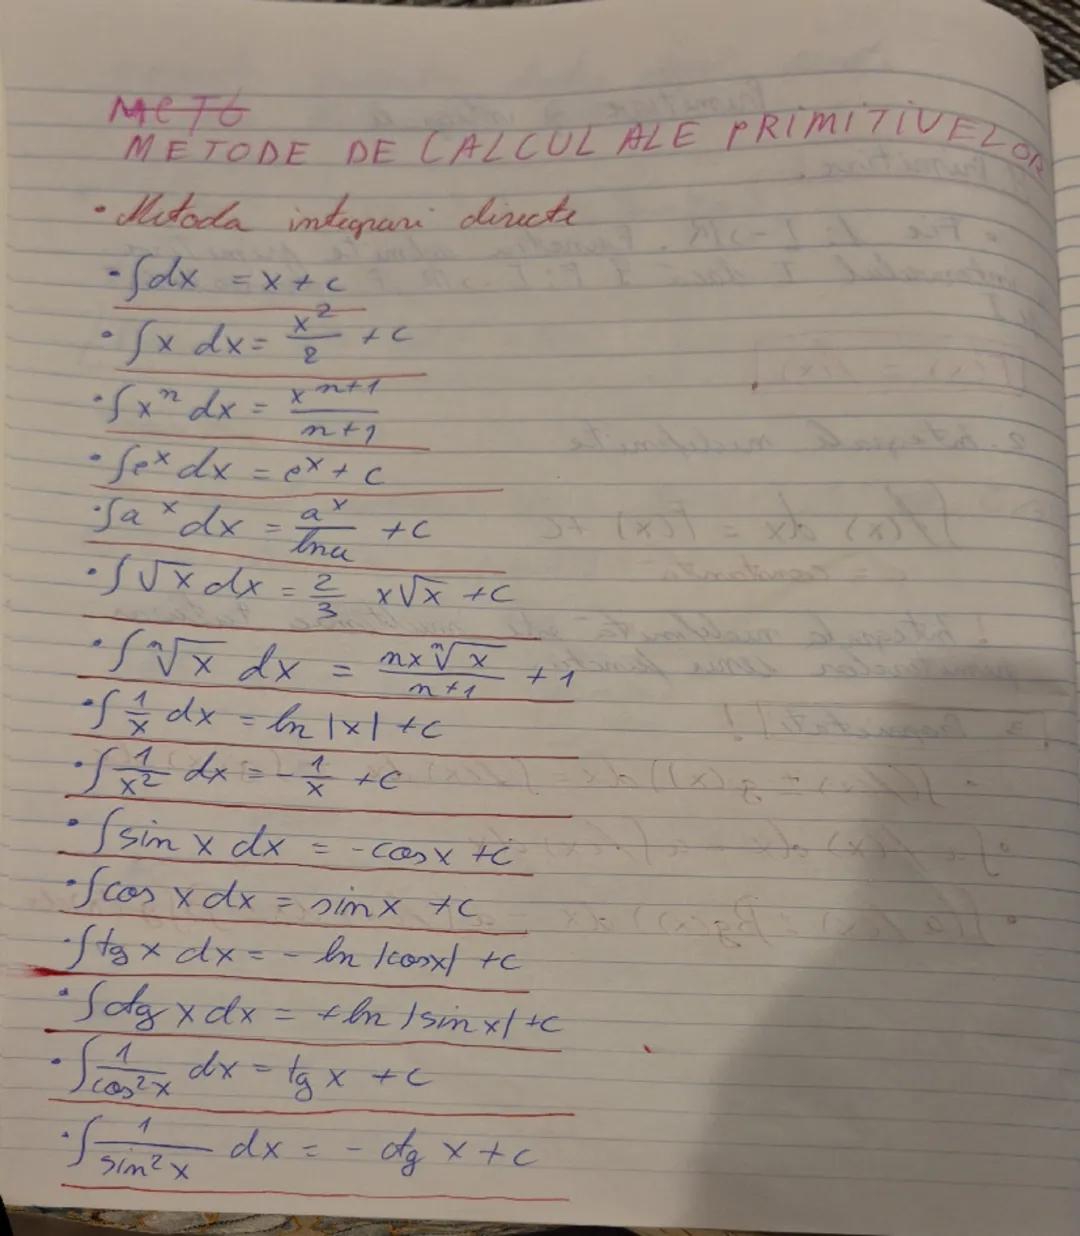 METO
METODE DE CALCUL ALE PRIMITIVELOR
• Metoda integrari directe
• ∫dx = x + c
• ∫x dx = x²/2 + c
• ∫xⁿ dx = xⁿ⁺¹/n+1
• ∫eˣ dx = eˣ + c
• ∫aˣ dx = aˣ/lna + c
• ∫√x dx = 2/3 x√x + c
• ∫ⁿ√x dx = nxⁿ√x/n+1 + 1
• ∫1/x dx = ln |x| + c
• ∫1/x² dx = -1/x + c
• ∫sin x dx = -cosx + c
• ∫cos x dx = sinx + c
• ∫tg x dx = - ln |cosx| + c
• ∫ctg x dx = +ln |sin x| + c
• ∫1/cos²x dx = tg x + c
• ∫1/sin²x dx = - ctg x + c